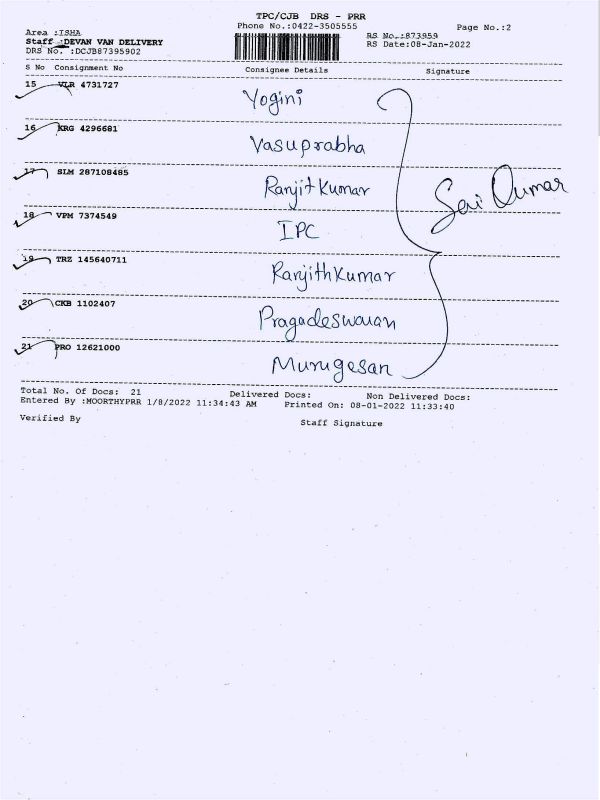 TPC/CJB DRS - PRR
Phone No.:0422-3505555
Page No.:2
Area :ISHA
Staff :DEVAN VAN DELIVERY
DRS No. :DCJB87395902
RS No.:873959
RS Date:08-Jan-2022
S No Consignment No Consignee Details Signature
15 VLR 4731727 Yogini
16 KRG 4296681 Vasuprabha
17 SLM 287108485 Ranjit Kumar
18 VPM 7374549 IPC
19 TRZ 145640711 Ranjith Kumar
20 CKB 1102407 Pragadeswaran
21 PRO 12621000 Murugesan
Sai
Total No. Of Docs: 21 Delivered Docs: Non Delivered Docs:
Entered By :MOORTHYPRR 1/8/2022 11:34:43 AM Printed On: 08-01-2022 11:33:40
Verified By Staff Signature